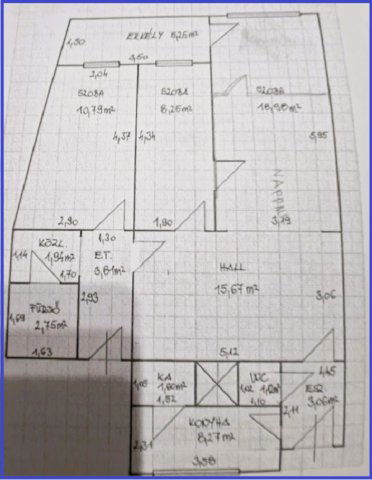 ERKÉLY 8,25 m²
1,50
5,50
2,04
SZOBA
10,79 m²
SZOBA
8,26 m²
SZOBA
18,98 m²
4,37
4,34
5,95
NAPPALI
2,90
1,90
3,19
KÖZL.
1,94 m²
1,14
1,70
1,30
ET.
3,81 m²
2,93
HALL
15,67 m²
3,06
FÜRDŐ
2,75 m²
1,69
1,63
5,12
KA
1,60 m²
1,05
1,52
WC
1,02
1,10
1,45
ESZ.
3,06 m²
2,11
KONYHA
8,27 m²
2,31
3,58